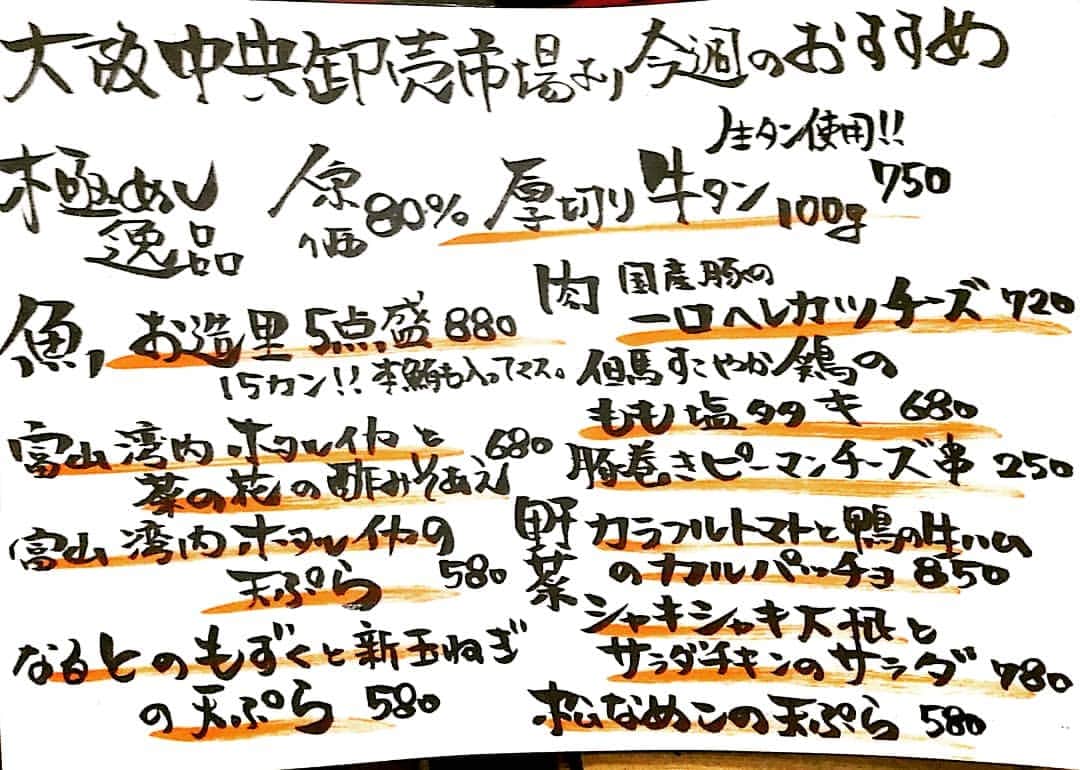 大阪中央卸売市場より今週のおすすめ
極めし逸品
原価80% 厚切り牛タン100g 750
生タン使用!!
魚
お造里5点盛 880
15カン!!本鮪も入ってマス。
富山湾内ホタルイカと
菜の花の酢みそあえ 680
富山湾内ホタルイカの
天ぷら 580
なるとのもずくと新玉ねぎ
の天ぷら 580
肉
国産豚の
一口ヘレカツチーズ 720
但馬すこやか鶏の
もも塩タタキ 680
豚巻きピーマンチーズ串 250
野菜
カラフルトマトと鴨の生ハム
のカルパッチョ 850
シャキシャキ大根と
サラダチキンのサラダ 780
松なめこの天ぷら 580